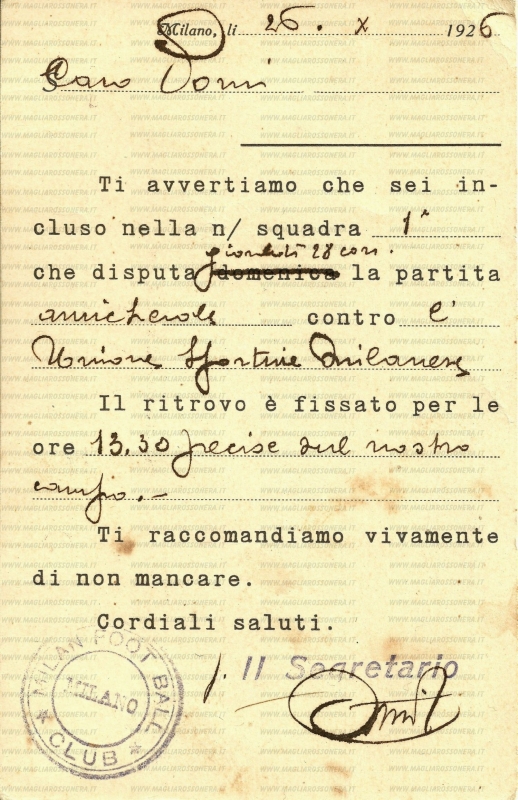 Milano, li 26. X 1926
Caro
Ti avvertiamo che sei in-
cluso nella n/ squadra 1ª
giovedì 28 corr.
che disputa domenica la partita
amichevole contro l'
Unione Sportiva Milanese
Il ritrovo è fissato per le
ore 13,30 precise sul nostro
campo.-
Ti raccomandiamo vivamente
di non mancare.
Cordiali saluti.
Il Segretario
MILAN FOOT BALL
MILANO
CLUB
WWW.MAGLIAROSSONERA.IT